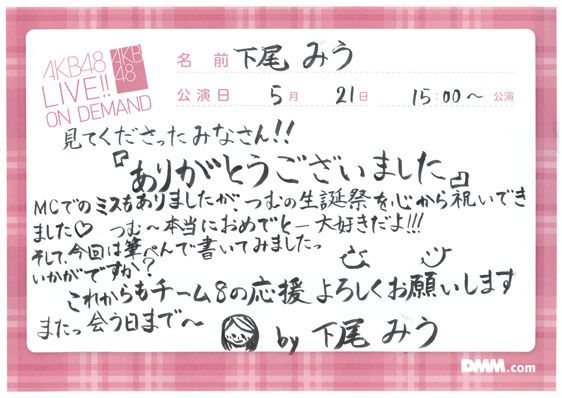 AKB48
LIVE!!
ON DEMAND
AKB
48
名 前 下尾 みう
公演日 5月 21日 15:00〜 公演
見てくださったみなさん!!
『ありがとうございました』
MCでのミスもありましたが、つむの生誕祭を心から祝いでき
ました♡ つむ〜本当におめでとー大好きだよ!!!
そして、今回は筆ぺんで書いてみましたっ
いかがですか?
これからもチーム8の応援よろしくお願いします
またっ会う日まで〜
by 下尾 みう
DMM.com